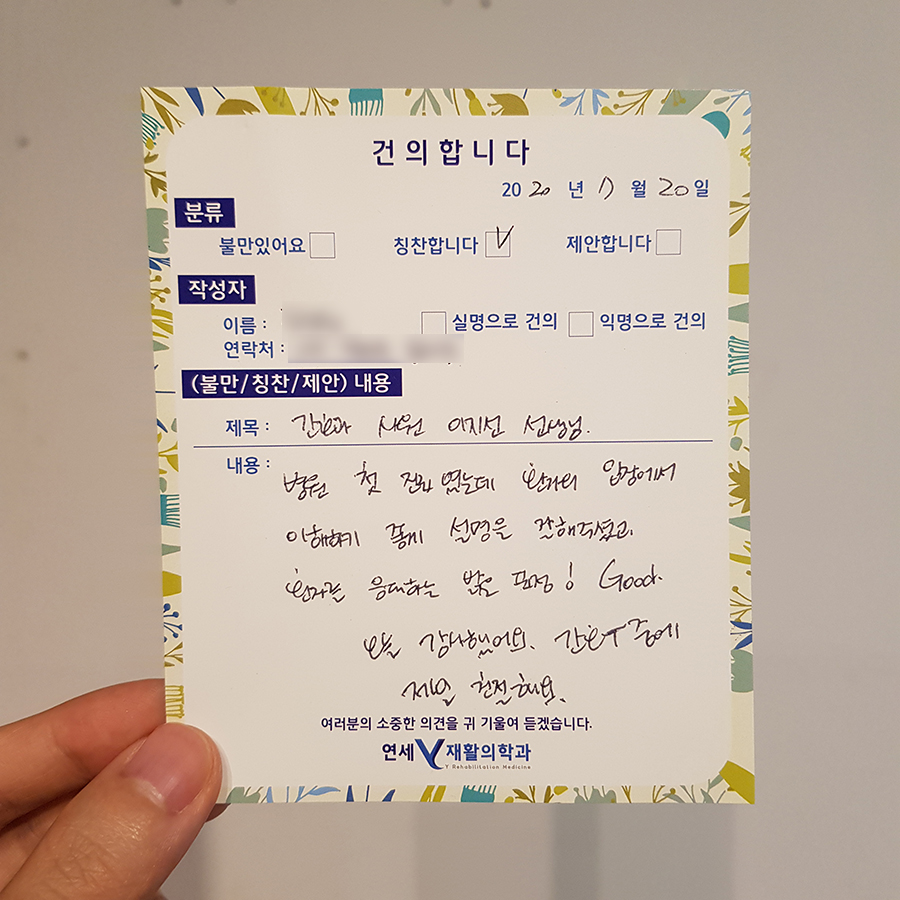 건의합니다
2020년 7월 20일
분류
불만있어요 칭찬합니다 V 제안합니다
작성자
이름 : 실명으로 건의 익명으로 건의
연락처 :
(불만/칭찬/제안) 내용
제목 : 간호과 사원 이지선 선생님.
내용 : 병원 첫 진료였는데 환자의 입장에서
이해하기 좋게 설명을 잘해주셨고
환자를 응대하는 밝은 표정! Good.
오늘 감사했어요. 간호사 중에
제일 친절해요.
여러분의 소중한 의견을 귀 기울여 듣겠습니다.
연세 Y 재활의학과
Y Rehabilitation Medicine